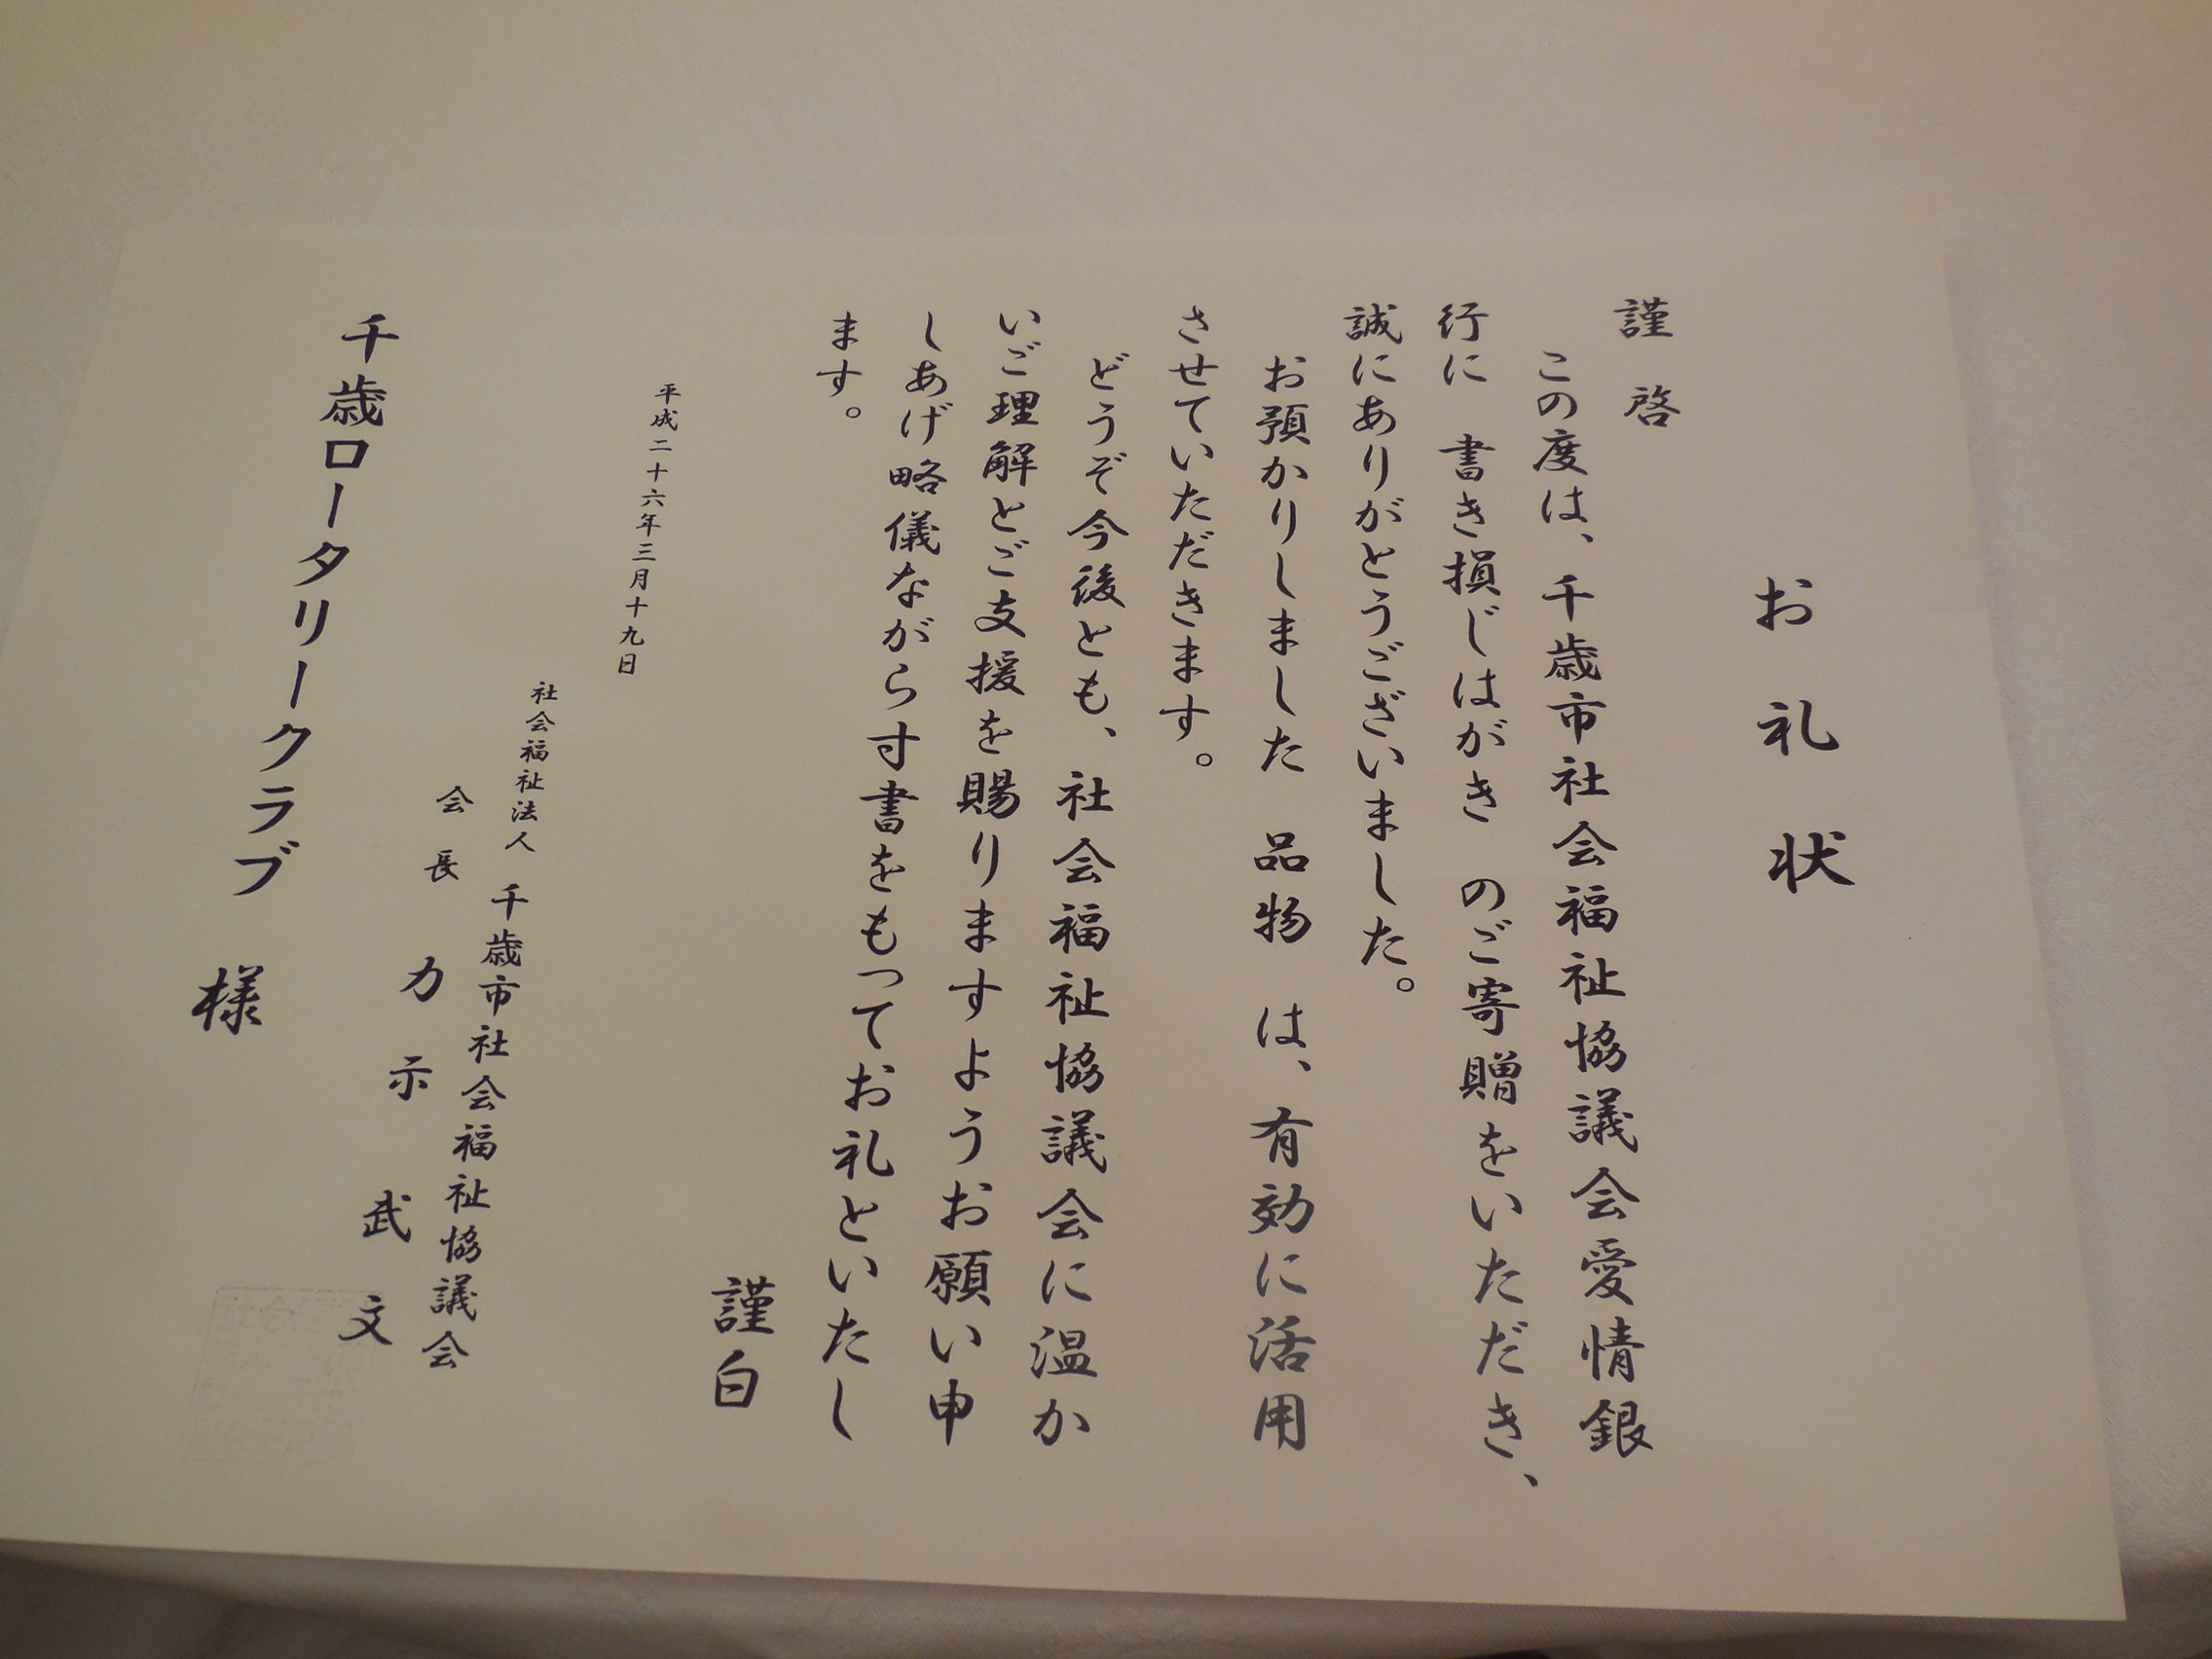 お礼状
謹啓
この度は、千歳市社会福祉協議会愛情銀
行に 書き損じはがき のご寄贈をいただき、
誠にありがとうございました。
お預かりしました 品物 は、有効に活用
させていただきます。
どうぞ今後とも、社会福祉協議会に温か
いご理解とご支援を賜りますようお願い申
しあげ略儀ながら寸書をもってお礼といたし
ます。
謹白
平成二十六年三月十九日
社会福祉法人 千歳市社会福祉協議会
会長 力示武文
千歳ロータリークラブ 様